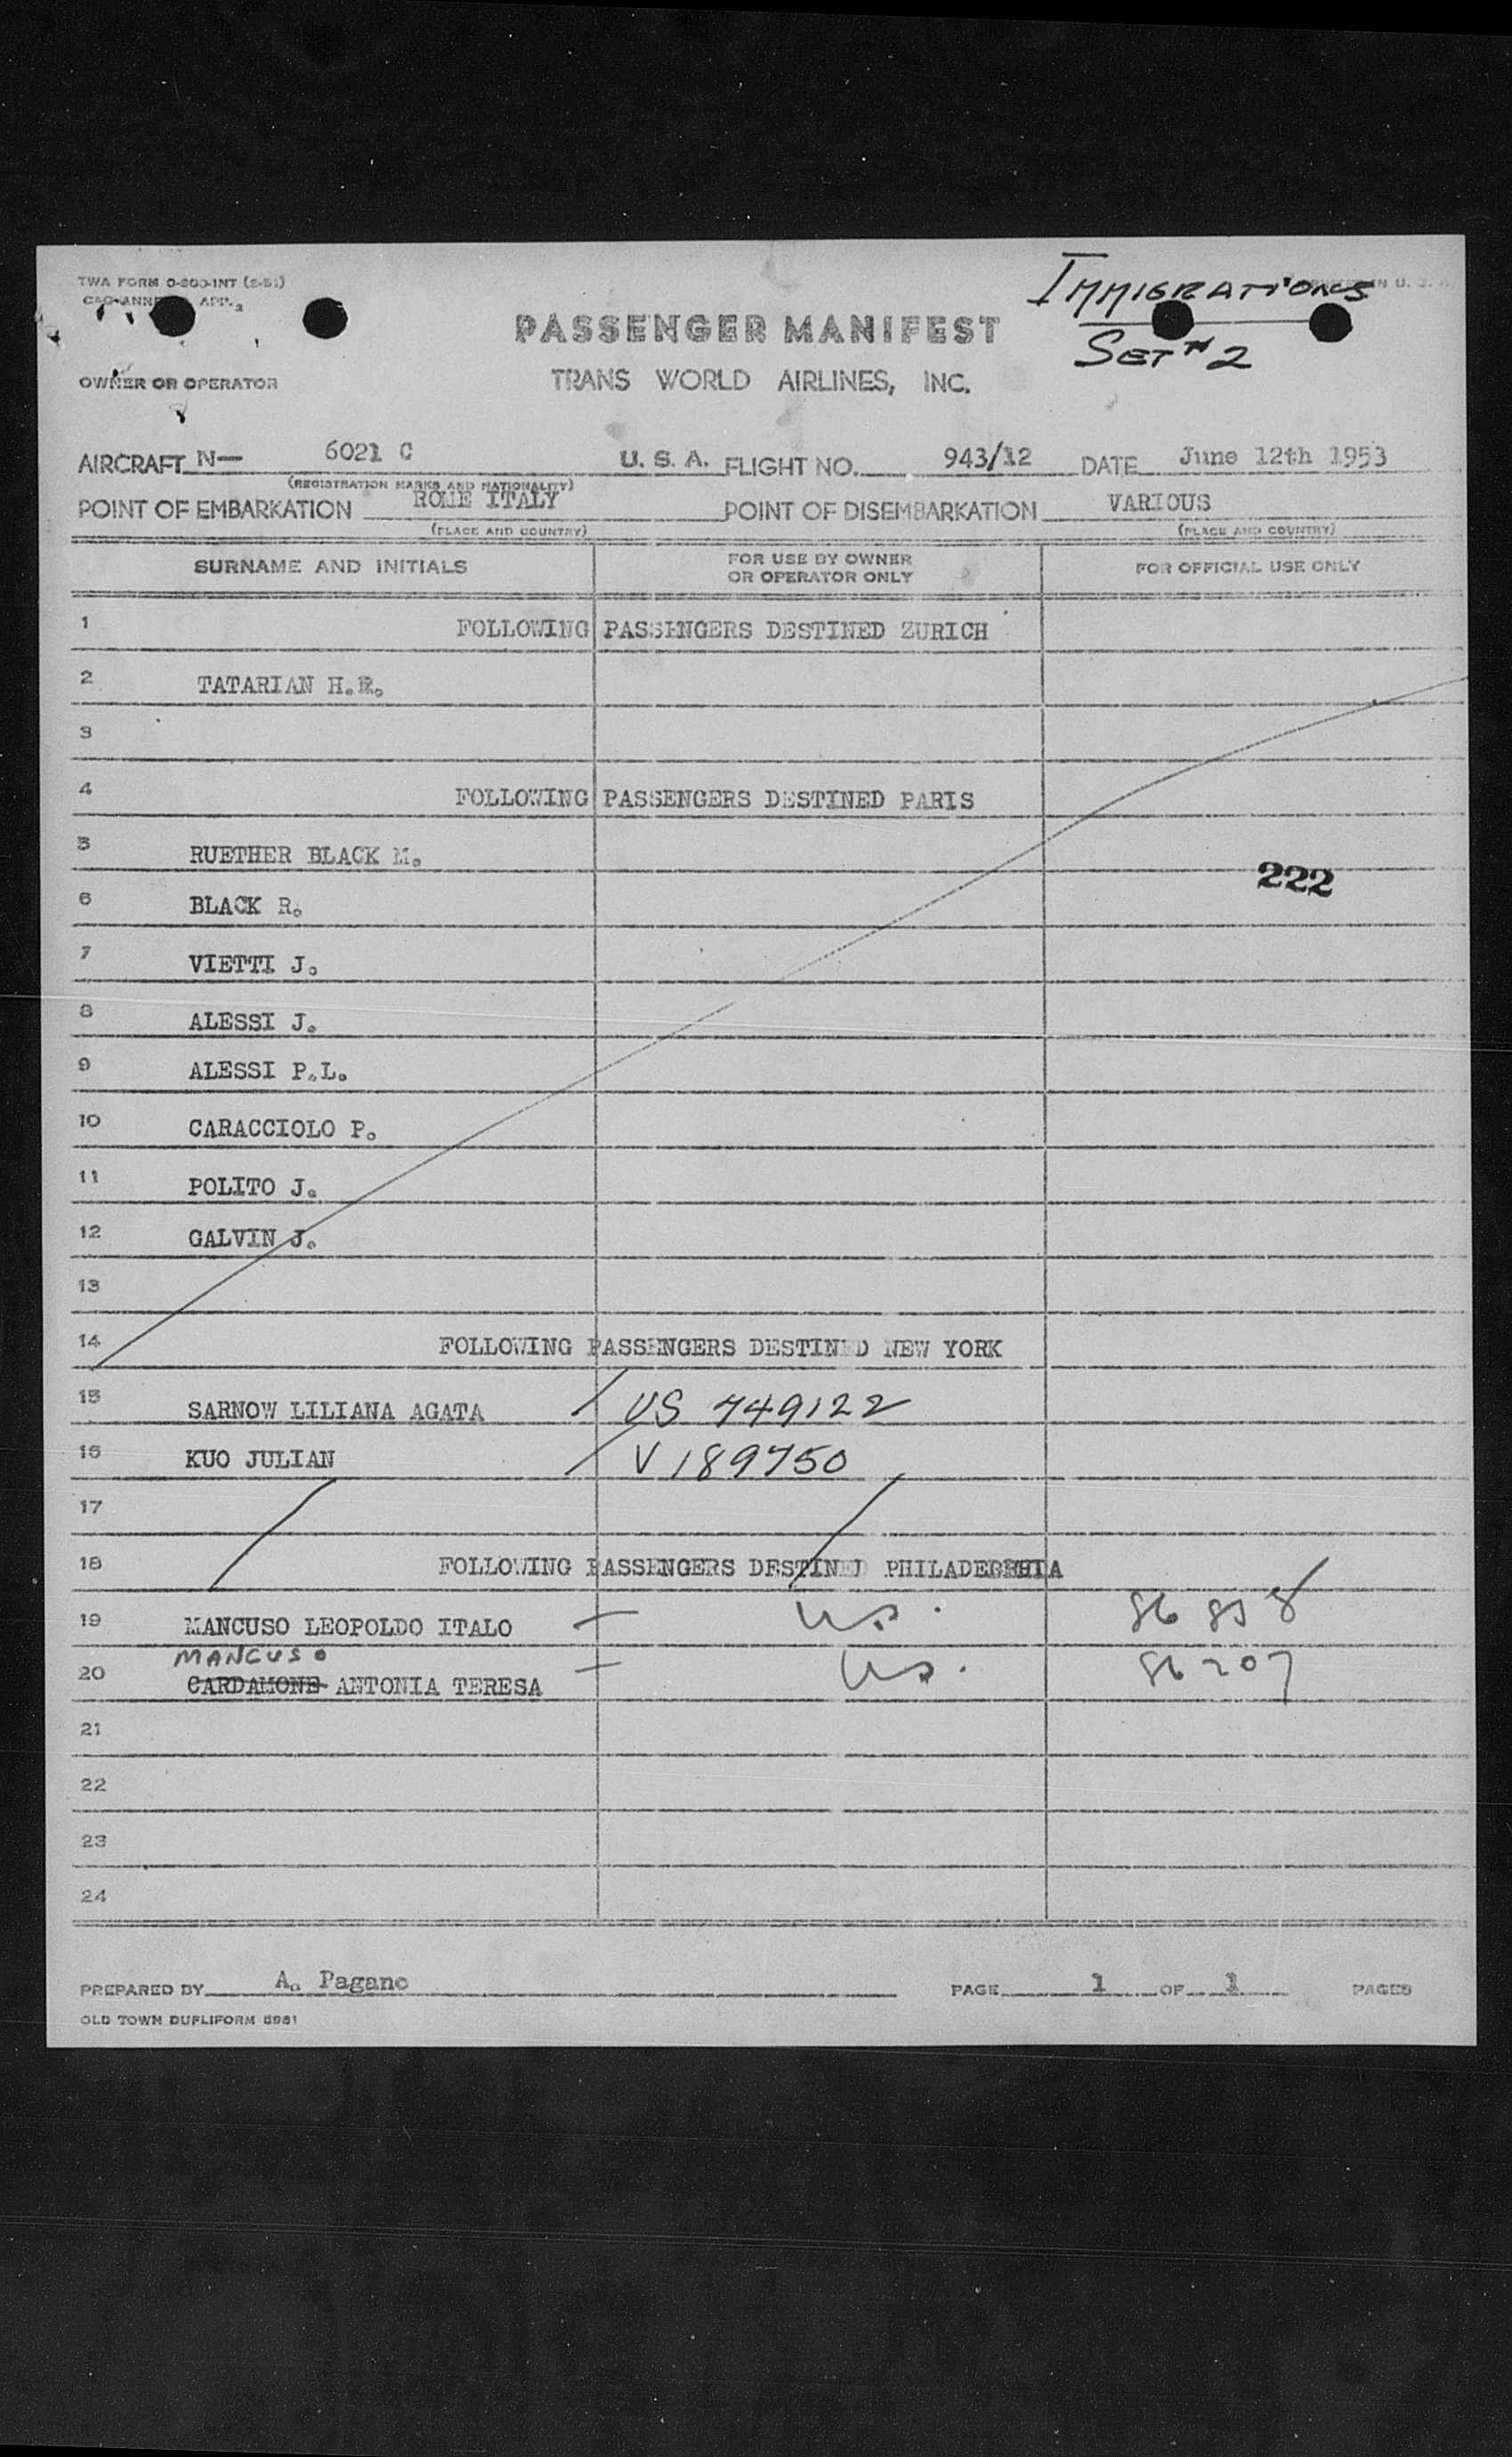 TWA FORM O-800-INT (5-51)
IMMIGRATIONS
SET # 2
PASSENGER MANIFEST
OWNER OR OPERATOR
TRANS WORLD AIRLINES, INC.
AIRCRAFT N— 6021 C U. S. A. FLIGHT NO. 943/12 DATE June 12th 1953
(REGISTRATION MARKS AND NATIONALITY)
POINT OF EMBARKATION ROME ITALY POINT OF DISEMBARKATION VARIOUS
(PLACE AND COUNTRY) (PLACE AND COUNTRY)
SURNAME AND INITIALS FOR USE BY OWNER OR OPERATOR ONLY FOR OFFICIAL USE ONLY
1 FOLLOWING PASSENGERS DESTINED ZURICH
2 TATARIAN H.R.
3
4 FOLLOWING PASSENGERS DESTINED PARIS
5 RUETHER BLACK M.
222
6 BLACK R.
7 VIETTI J.
8 ALESSI J.
9 ALESSI P.L.
10 CARACCIOLO P.
11 POLITO J.
12 GALVIN J.
13
14 FOLLOWING PASSENGERS DESTINED NEW YORK
15 SARNOW LILIANA AGATA US 749122
16 KUO JULIAN V 189750
17
18 FOLLOWING PASSENGERS DESTINED
19 MANCUSO LEOPOLDO ITALO US. 86 858
MANCUSO
20 CARDAMONE ANTONIA TERESA US. 86207
21
22
23
24
PREPARED BY A. Pagano PAGE 1 OF 1 PAGES
OLD TOWN DUPLIFORM 5981